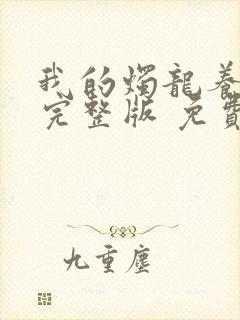 我的燭龍養
完整版 免費
九重塵